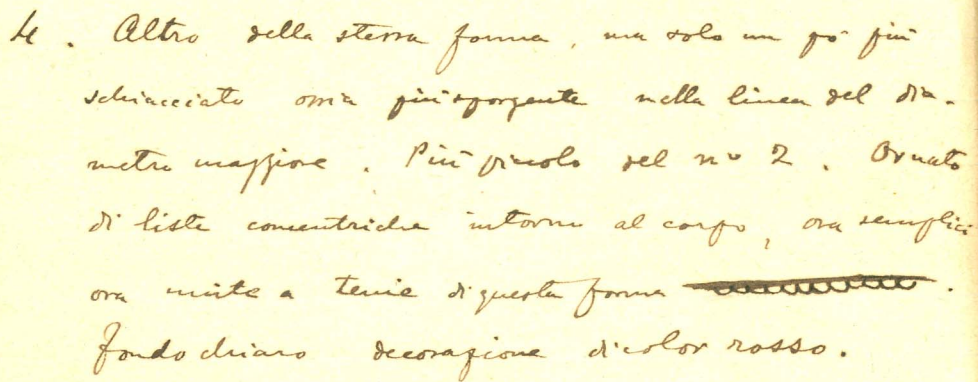 4. Altro della stessa forma, ma solo un pò più
schiacciato ossia più sporgente nella linea del dia-
metro maggiore. Più piccolo del nº 2. Ornato
di liste concentriche intorno al corpo, ora semplici
ora miste a tenie di questa forma .
fondo chiaro decorazione di color rosso.